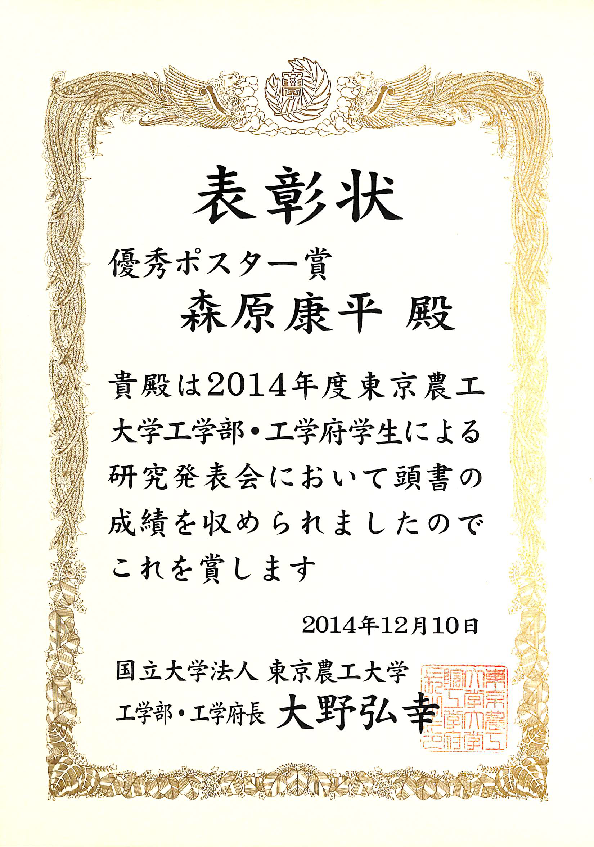 表彰状
優秀ポスター賞
森原康平 殿
貴殿は2014年度東京農工
大学工学部・工学府学生による
研究発表会において頭書の
成績を収められましたので
これを賞します
2014年12月10日
国立大学法人 東京農工大学
工学部・工学府長 大野弘幸